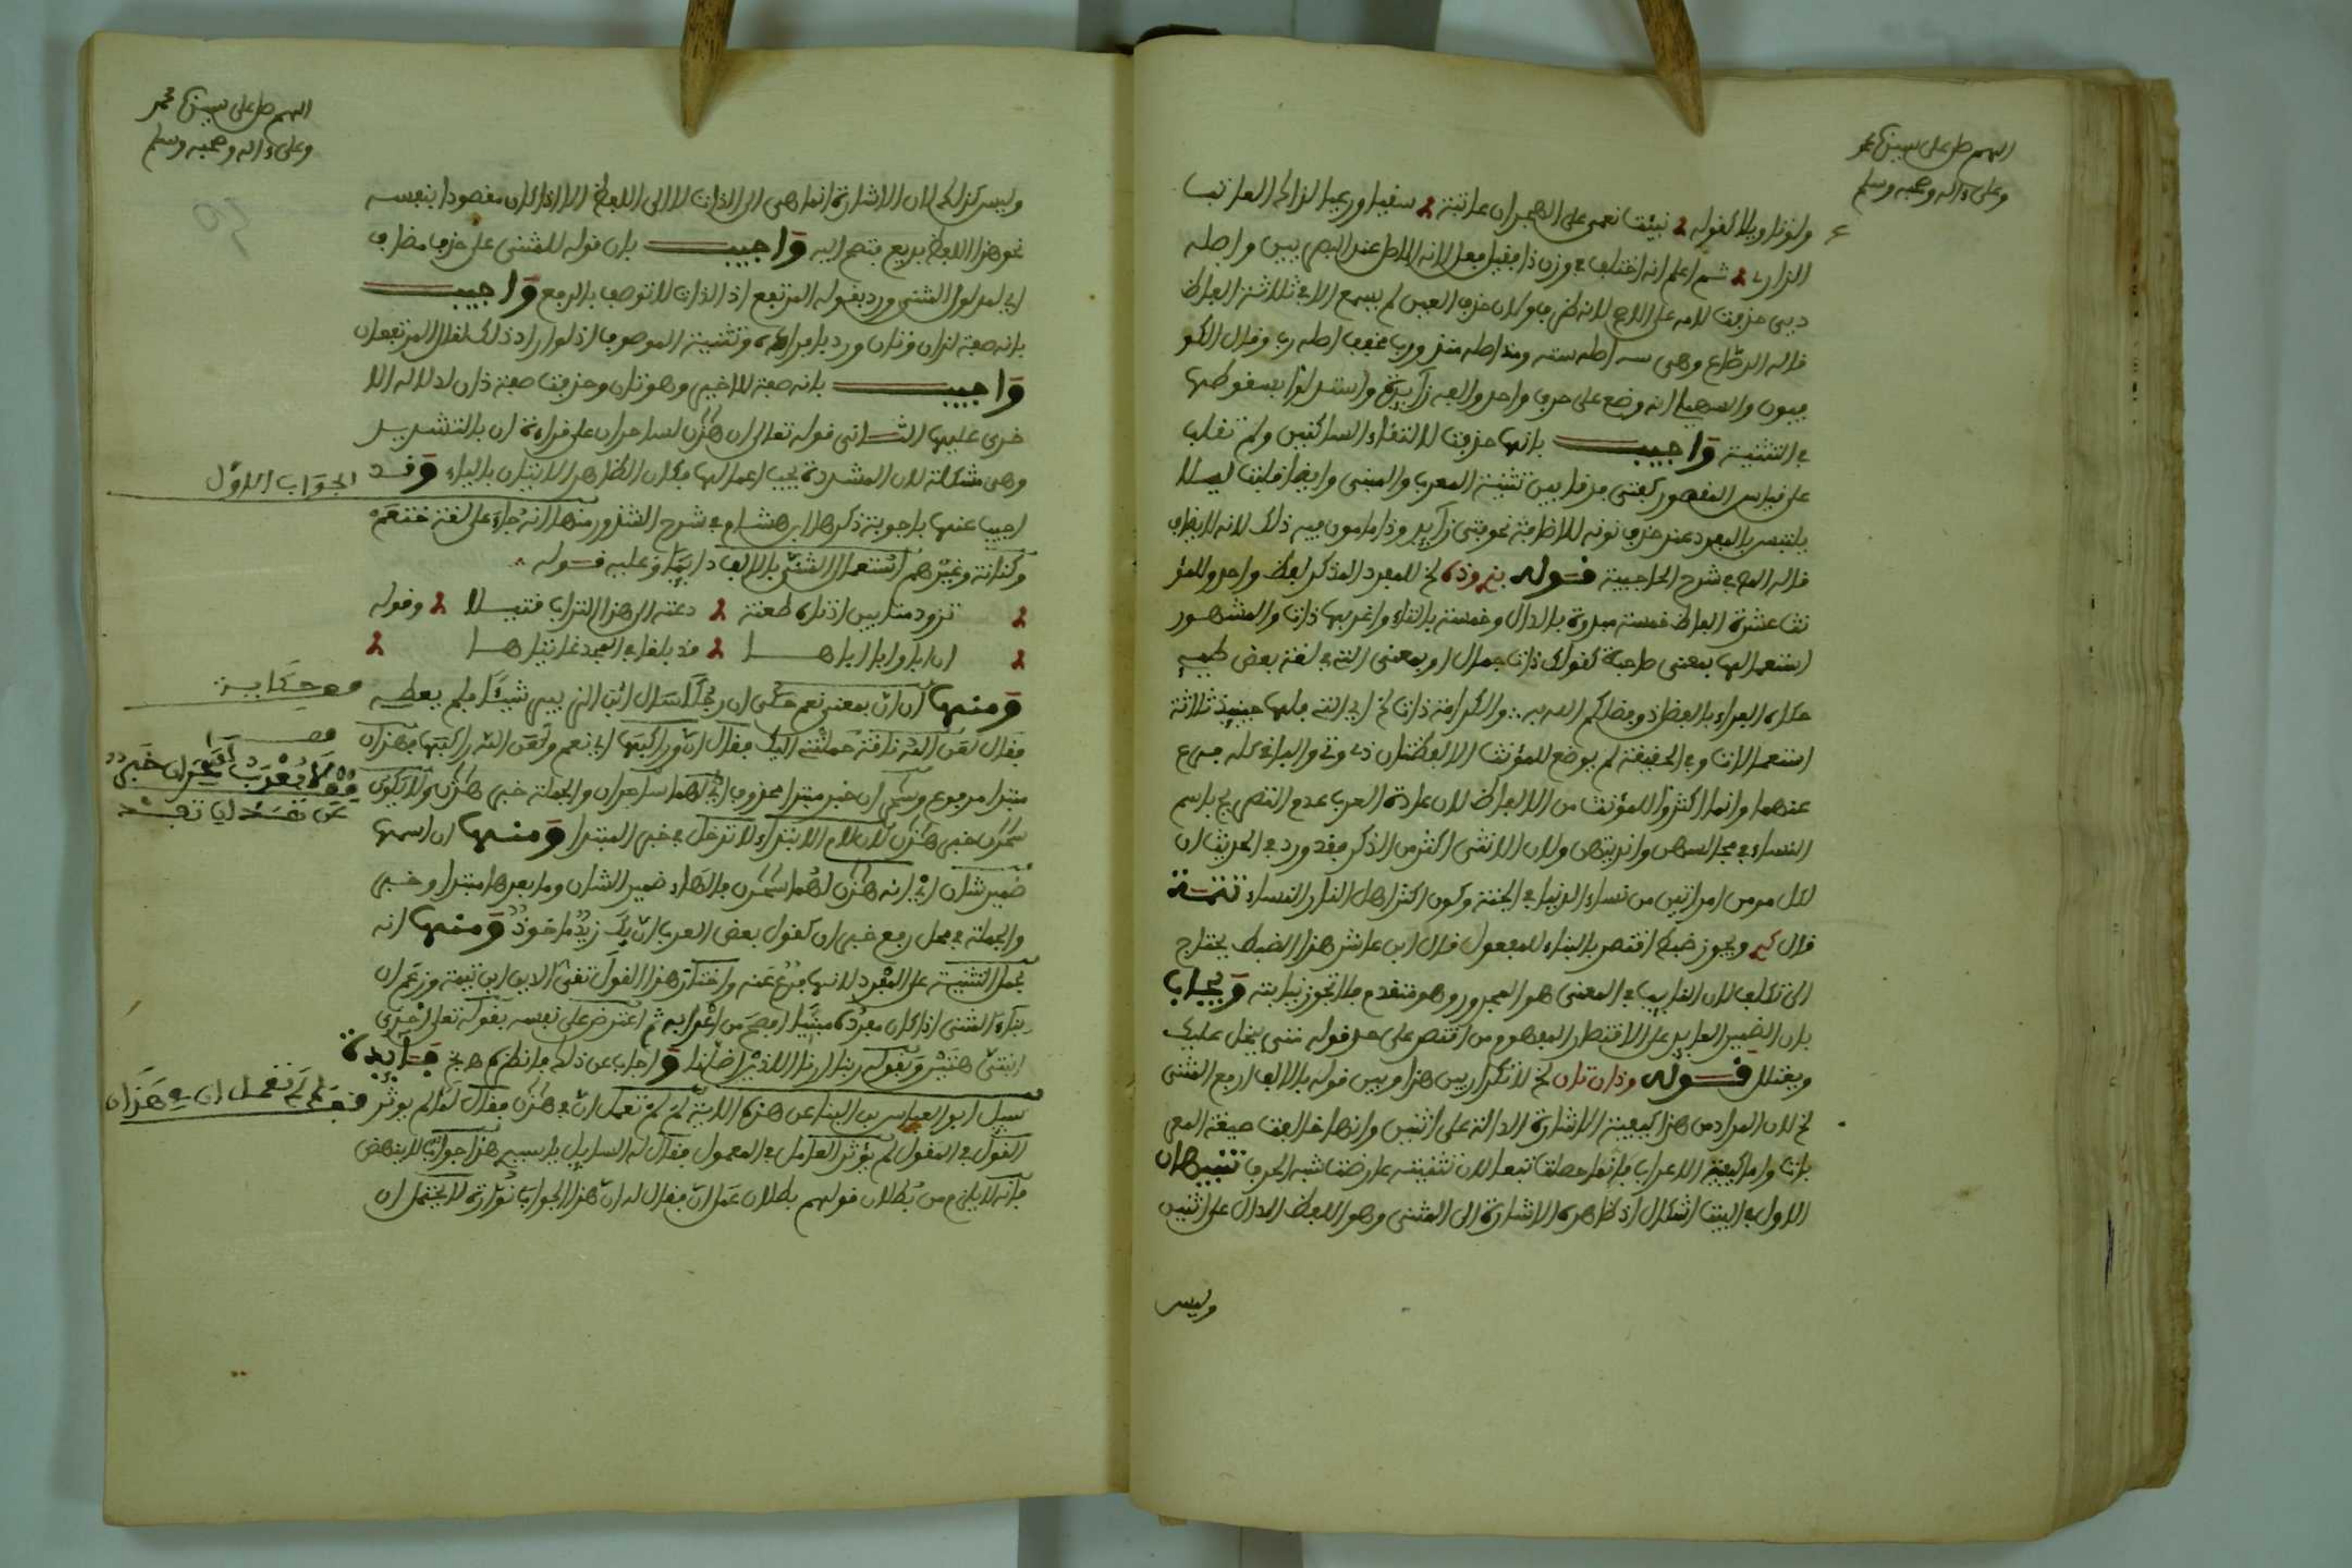 اللهم صل على سيدنا محمد
وعلى ءاله وصحبه وسلم
ولو تاويلا كقوله نبئت نعمى على الهجران عاتبة سقيا ورعيا لذاك العاتب
الزاري ثم اعلم انه اختلف في وزن ذا فقيل فعل لانه الاصل عند البصريين واصله
ديى حذفت لامه على الاصح لانه طرف ولان حذف العين لم يسمع الا في ثلاثة الفاظ
قاله الرضاع وهي سه اصله سته ومذ اصله منذ ورب مخفف اصله رب وقال الكو
فيون والسهيلي انه وضع على حرف واحد والفه زايدة واستدلوا بسقوطها
في التثنية واجيب بانها حذفت لالتقاء الساكنين ولم تقلب
على قياس المقصور كفتى فرقا بين تثنية المعرب والمبني وايضا قلبت ليلا
يلتبس بالمفرد عند حذف نونه للاضافة نحو فتى زايد وذا مامون فيه ذلك لانه لا يضاف
قاله في شرح الحاجبية قوله بذي وذه الخ للمفرد المذكر لفظ واحد وللمؤ
نث عشرة الفاظ خمسة مبدوة بالدال وخمسة بالتاء واغربها ذات والمشهور
استعمالها بمعنى صاحبة كقولك ذات جمال او بمعنى التي في لغة بعض طيء
حكاه الفراء بالفضل ذو فضلكم الله به والكرامة ذات الخ اي التي فلها حينئذ ثلاثة
استعمالات وفي الحقيقة لم يوضع للمؤنث الا لفظتان ذي وتي والباقي كله فرع
عنهما وانما اكثروا للمؤنث من الالفاظ لان عادة العرب عدم التصريح باسم
النساء في مجالسهن وانديتهن ولان الانثى اكثر من الذكر فقد ورد في الحديث ان
لكل مومن امراتين من نساء الدنيا في الجنة وكون اكثر اهل النار النساء تتمة
قال ويجوز ضبط اقتصر بالبناء للمفعول قال ابن عاشر هذا الضبط يحتاج
الى تكلف لان النايب في المعنى هو المجرور وهو متقدم فلا تجوز نيابته ويجاب
بان الضمير العايد على الاقتصار المفهوم من اقتصر على حد قوله متى يبخل عليك
ويعتلل قوله وذان تان الخ لا تكرار بين هذا وبين قوله بالالف ارفع المثنى
الخ لان المراد من هذا كيفية الاشارة الدالة على اثنين وانها خالفت صيغة المفر
بانا واما كيفية الاعراب فانما حصلت تبعا لان تثنيته عارضت شبه الحرف تنبيهان
الاول في البيت اشكال اذ ظاهره الاشارة الى المثنى وهو اللفظ الدال على اثنين
وليس
اللهم صل على سيدنا محمد
وعلى ءاله وصحبه وسلم
وليس كذلك لان الاشارة انما هي الى الذات لا الى اللفظ الا اذا كان مقصودا بنفسه
نحو هذا اللفظ بديع واجيب بان قوله للمثنى على حذف مضاف
اي لمدلول المثنى ورد بقوله المرتفع اذ الذات لا توصف بالرفع واجيب
بانه صفة لذان وتان ورد بافراده وتثنية الموصوف اذ لو اراد ذلك لقال المرتفعان
واجيب بانه صفة للاخير وهو تان وحذفت صفة ذان لدلالة الا
خرى عليها الثاني قوله تعالى ان هذان لساحران على قراءة ان بالتشديد
وهي مشكلة لان المشددة يجب اعمالها فكان الظاهر الاتيان بالياء وقد
الجواب الاول
اجيب عنها باجوبة ذكرها ابن هشام في شرح الشذور منها انه جاء على لغة خثعم
وكنانة وغيرهم استعمال المثنى بالالف دايما وعليه قوله
تزود منا بين اذناه طعنة دعته الى هذا التراب فتيلا وقوله
ان اباها وابا اباها قد بلغا في المجد غايتاها
ومنها ان ان بمعنى نعم حكي ان رجلا سال ابن الزبير شيئا فلم يعطه
قف حكاية
فقال لعن الله ناقة حملتني اليك فقال ان وراكبها اي نعم ولعن الله راكبها فهذان
مبتدا مرفوع وساحران خبر مبتدا محذوف اي لهما ساحران والجملة خبر هذان ولا يكون
ساحران خبر هذان لان لام الابتداء لا تدخل في خبر المبتدا ومنها ان اسمها
ضمير شان اي انه هذان لهما ساحران فالهاء ضمير الشان وما بعدها مبتدا وخبر
والجملة في محل رفع خبر ان كقول بعض العرب ان بك زيد ماخوذ ومنها انه
يحمل التثنية على المفرد لانها فرع عنه واختار هذا القول تقي الدين ابن تيمية وزعم ان
بناء المثنى اذا كان مفرده مبنيا افصح من اعرابه ثم اعترض على نفسه بقوله تعالى احدى
ابنتي هاتين وبقوله ربنا ارنا اللذين اضلانا واجاب عن ذلك فانظره فايدة
سيل ابو العباس بن البناء عن هذه الاية لم لم تعمل ان في هذان فقال لما لم يوثر
قف على لم لم تعمل ان في هذان
القول في المقول لم يوثر العامل في المعمول فقال له السايل يا سيدي هذا جواب لا ينهض
فانه لا يلزم من بطلان قولهم بطلان عمل ان فقال له ان هذا الجواب نوارة لا تحتمل ان